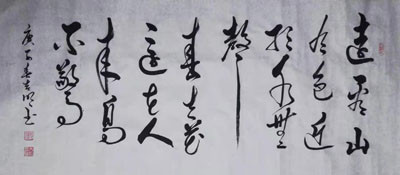 遠看山
有色近
聽水無
聲
春去花
還在人
來鳥
不驚
庚子春書